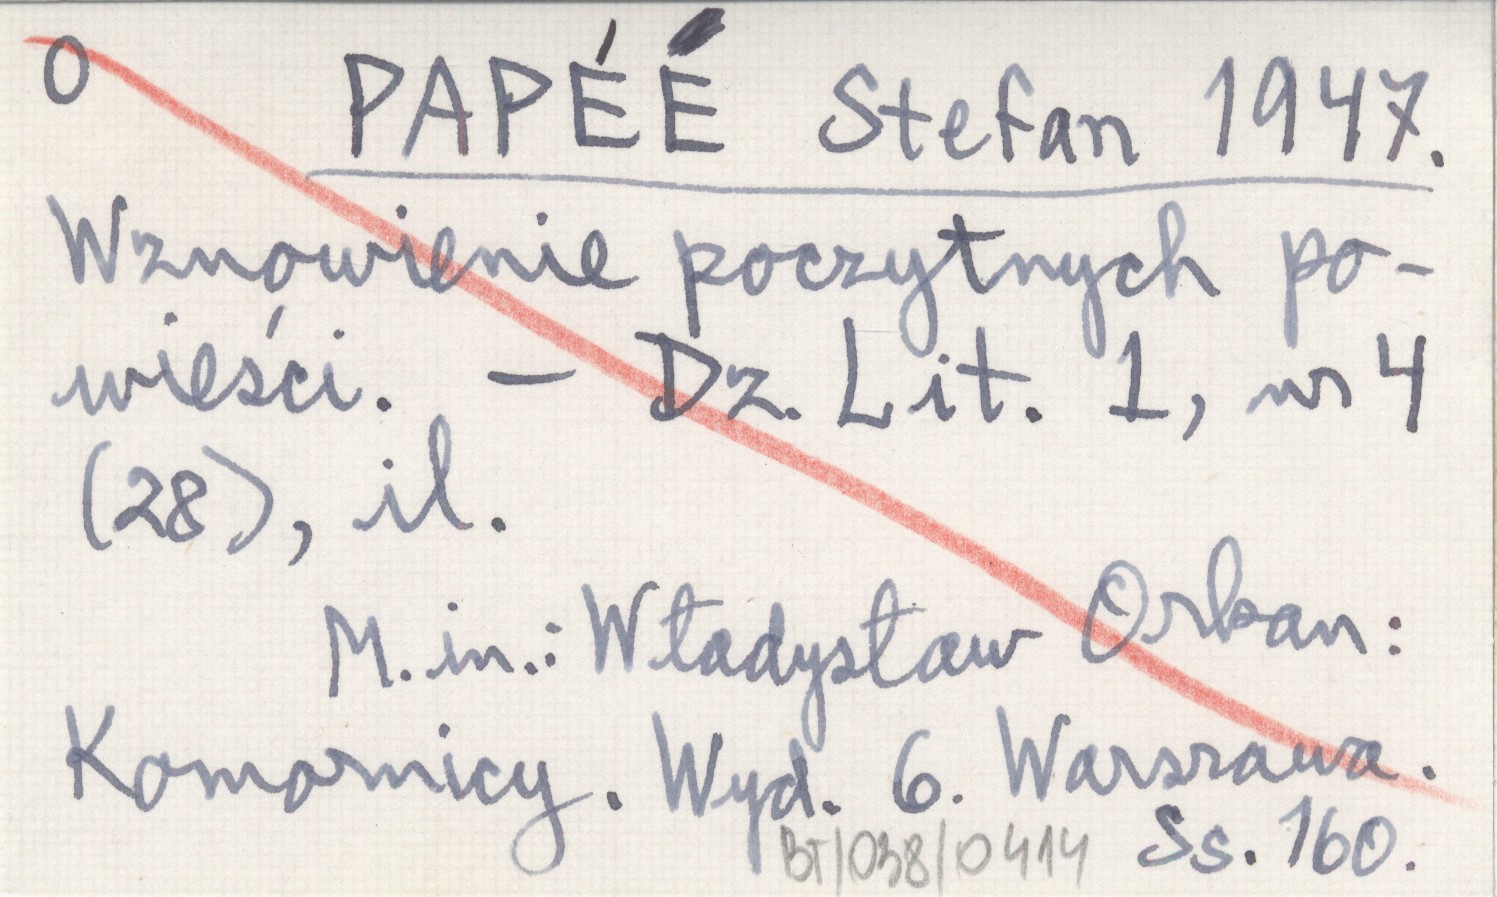 O PAPÉÉ Stefan 1947.
Wznowienie poczytnych po-
wieści. – Dz. Lit. 1, nr 4
(28), il.
M. in.: Władysław Orkan:
Komornicy. Wyd. 6. Warszawa.
Ss. 160.
BT/038/0414